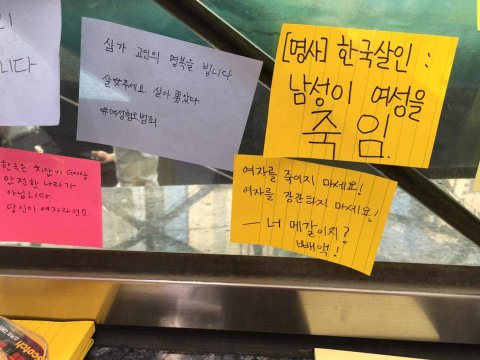 리
니다
삼가 고인의 명복을 빕니다.
살女주세요. 살아男았다
#여성혐오범죄
[명사] 한국살인 :
남성이 여성을
죽임.
한국은 치안이
안전한 나라가
아닙니다.
당신이 여자라면요.
여자를 죽이지 마세요!
여자를 강간하지 마세요!
— 너 메갈이지?
빼액!
Scotch